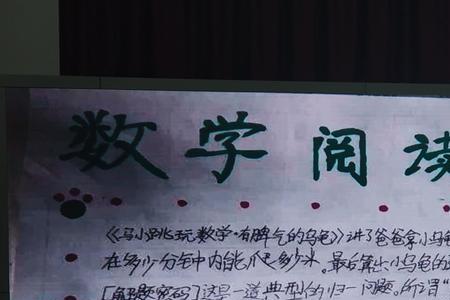 数学阅读
《马小跳玩数学·有脾气的乌龟》讲了爸爸拿小乌龟
在多少分钟内能爬多少米。最后算出小乌龟的
[解题密码]这是一道典型的归一问题,所谓"